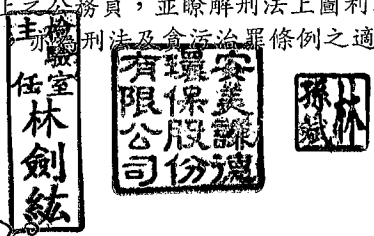 上之公務員，並瞭解刑法上圖利
，亦為刑法及貪污治罪條例之適
檢驗室
主任
林劍紘
安美謙德
環保股份
有限公司
林
孫斌